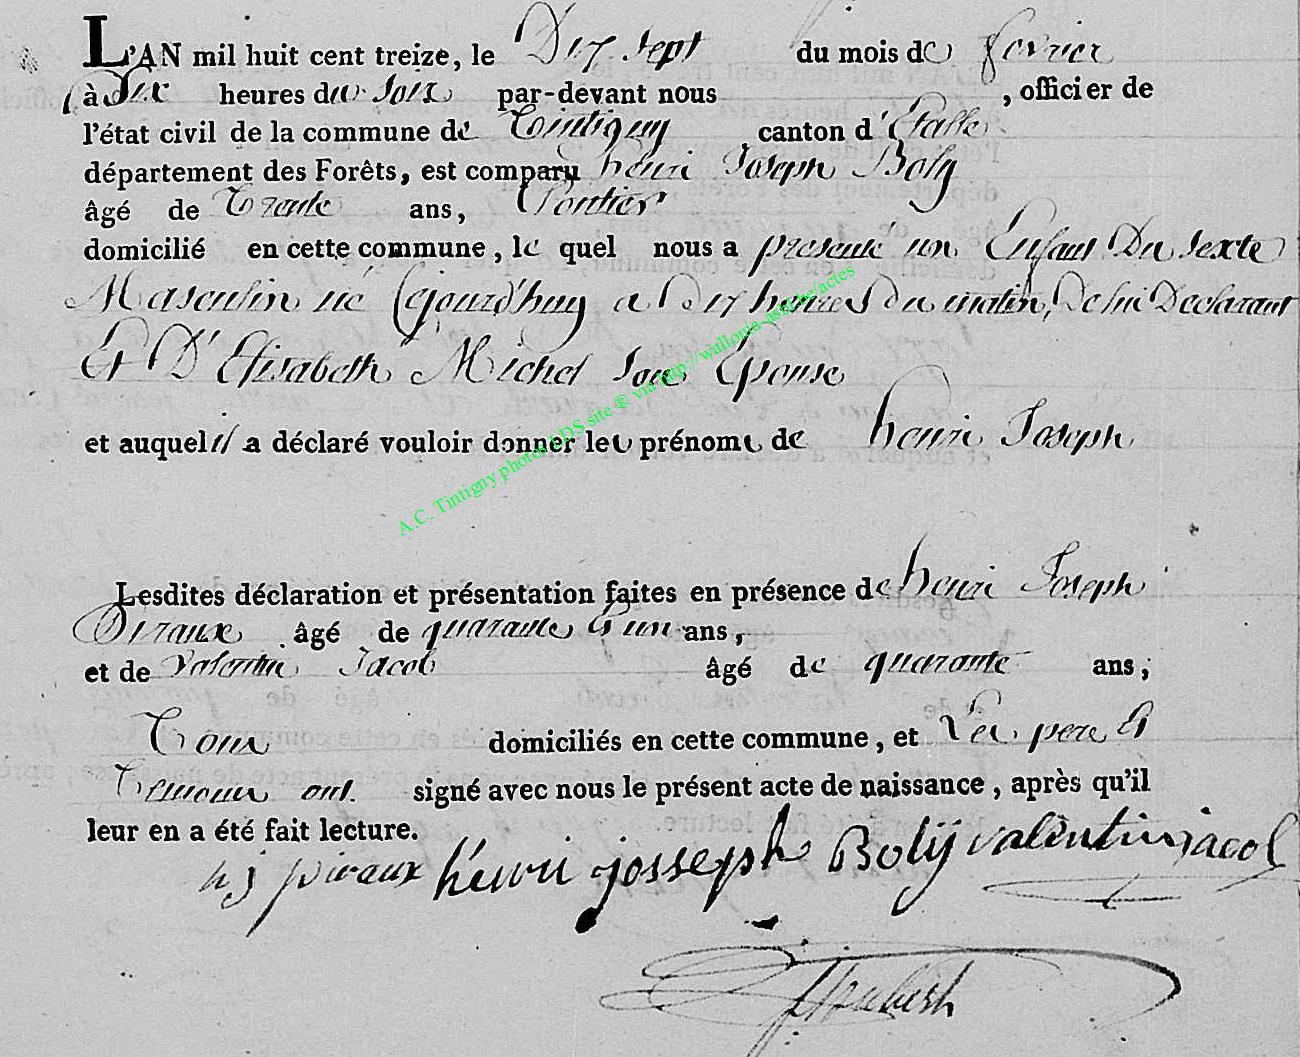 L'AN mil huit cent treize, le Dix sept du mois de fevrier
à Six heures du Soir par-devant nous , officier de
l'état civil de la commune de Tintigny canton d'Etalle
département des Forêts, est comparu henri Joseph Boly
âgé de Trente ans,
domicilié en cette commune, le quel nous a presenté un Enfant Du Sexte
Masculin né Cejourd'huy a Dix heures Du matin, De lui Declarant
Et D'Elisabeth Michel Son Epouse
et auquel il a déclaré vouloir donner le prénom de henri Joseph
Lesdites déclaration et présentation faites en présence de henri Joseph
Piraux âgé de quarante Et un ans,
et de Valentin Jacob âgé de quarante ans,
Tous domiciliés en cette commune, et Les pere Et
Temoins ont signé avec nous le présent acte de naissance, après qu'il
leur en a été fait lecture.
h j piraux henri josseph Bolÿ valentin jacob
A.C. Tintigny photos LDS site ® via http://wallonia-asbl.be/actes